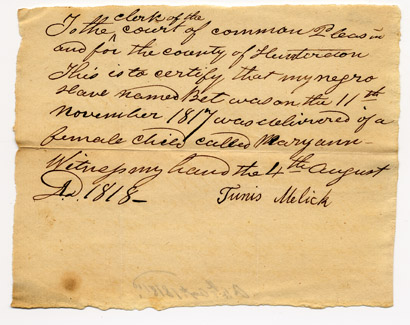 clerk of the
To the ^ court of common Pleas in
and for the county of Hunterdon
This is to certify that my negro
slave named Bet was on the 11th
november 1817 was delivered of a
female child called Mary ann
Witness my hand the 4th august
AD. 1818-
Tunis Melick